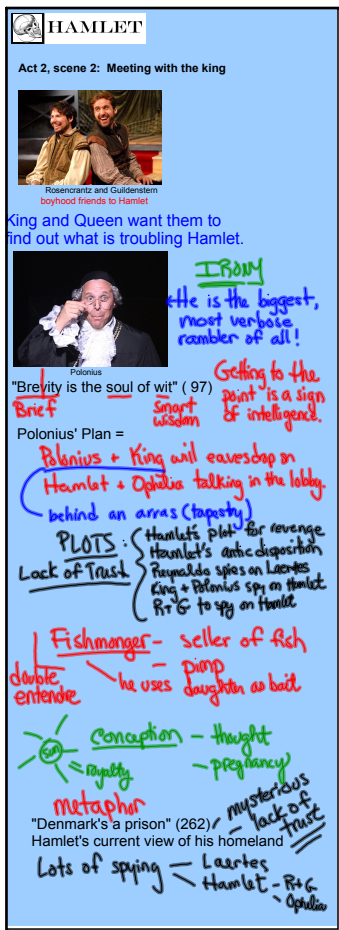 HAMLET
Act 2, scene 2: Meeting with the king
Rosencrantz and Guildenstern
boyhood friends to Hamlet
King and Queen want them to
find out what is troubling Hamlet.
IRONY
He is the biggest,
most verbose
rambler of all!
Polonius
"Brevity is the soul of wit" ( 97)
Brief
Smart
wisdom
Getting to the
point is a sign
of intelligence.
Polonius' Plan =
Polonius + King will eavesdrop on
Hamlet + Ophelia talking in the lobby.
behind an arras (tapestry)
PLOTS:
Lack of Trust
Hamlet's plot for revenge
Hamlet's antic disposition
Reynaldo spies on Laertes
King + Polonius spy on Hamlet
R+G to spy on Hamlet
Fishmonger - seller of fish
- pimp
double
entendre
he uses daughter as bait
Conception - thought
- pregnancy
sun
= royalty
metaphor
"Denmark's a prison" (262)
Hamlet's current view of his homeland
- mysterious
- lack of
trust
Lots of spying - Laertes
- Hamlet - R+G
- Ophelia